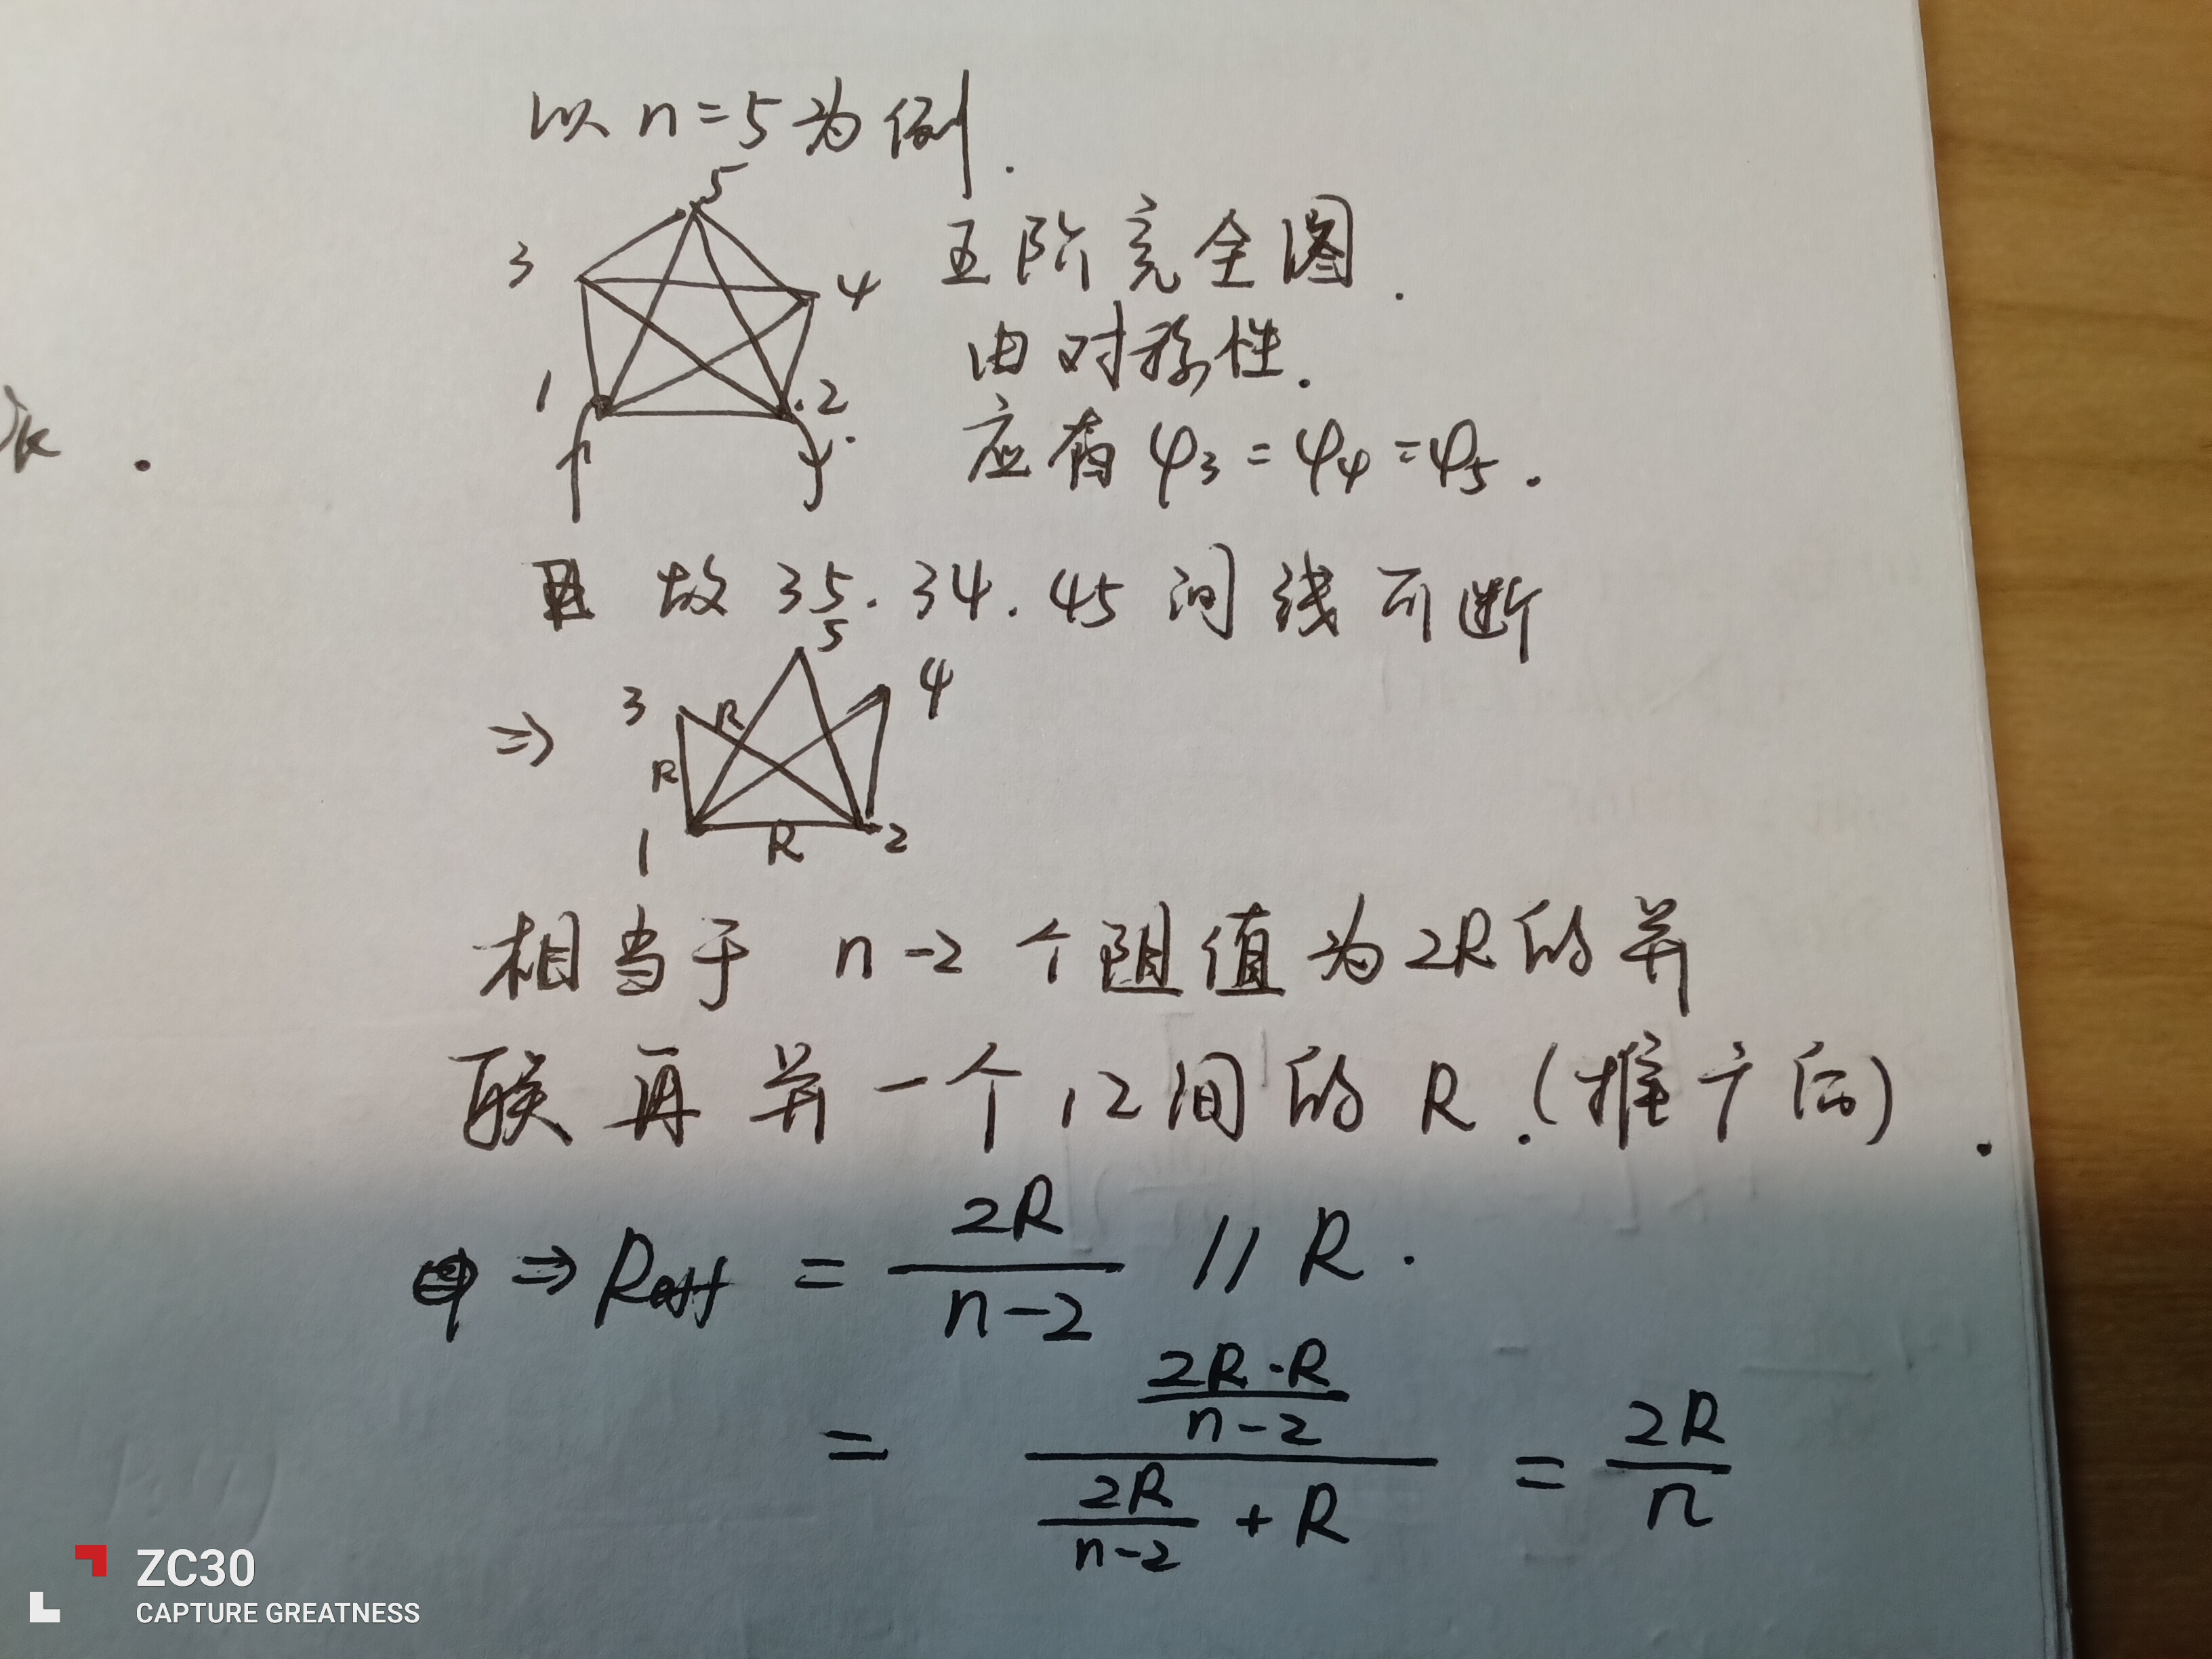 以 n=5 为例.
5
3
4
1
2
五阶完全图.
由对称性.
应有 φ3=φ4=φ5.
故 35. 34. 45 间线可断
5
3
R
4
⇒
R
1
R
2
相当于 n-2 个阻值为2R的并
联再并一个12间的R.(推广后).
⇒ Reff = 2R/(n-2) // R.
= (2R·R/(n-2))/(2R/(n-2) + R) = 2R/n
ZC30
CAPTURE GREATNESS